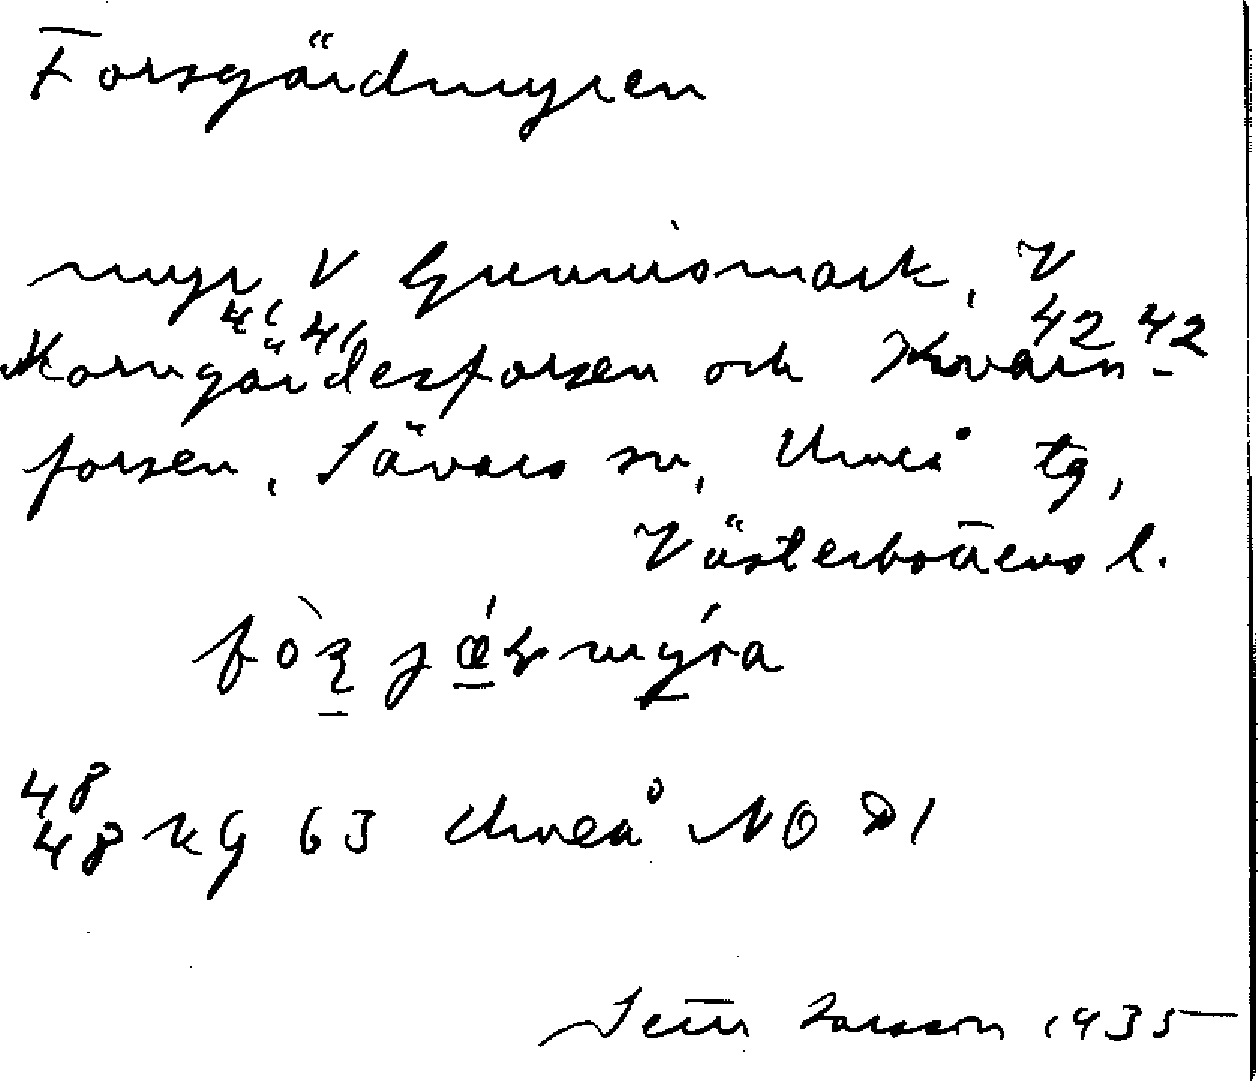 Forsgärdmyren
myr V Gunnismark, V
41 41 42 42
Korngärdesforsen och Kvarn-
forsen, Sävars sn, Umeå tg,
Västerbottens l.
48
48 kg 63 Umeå NO D1
Seth Larsson 1935